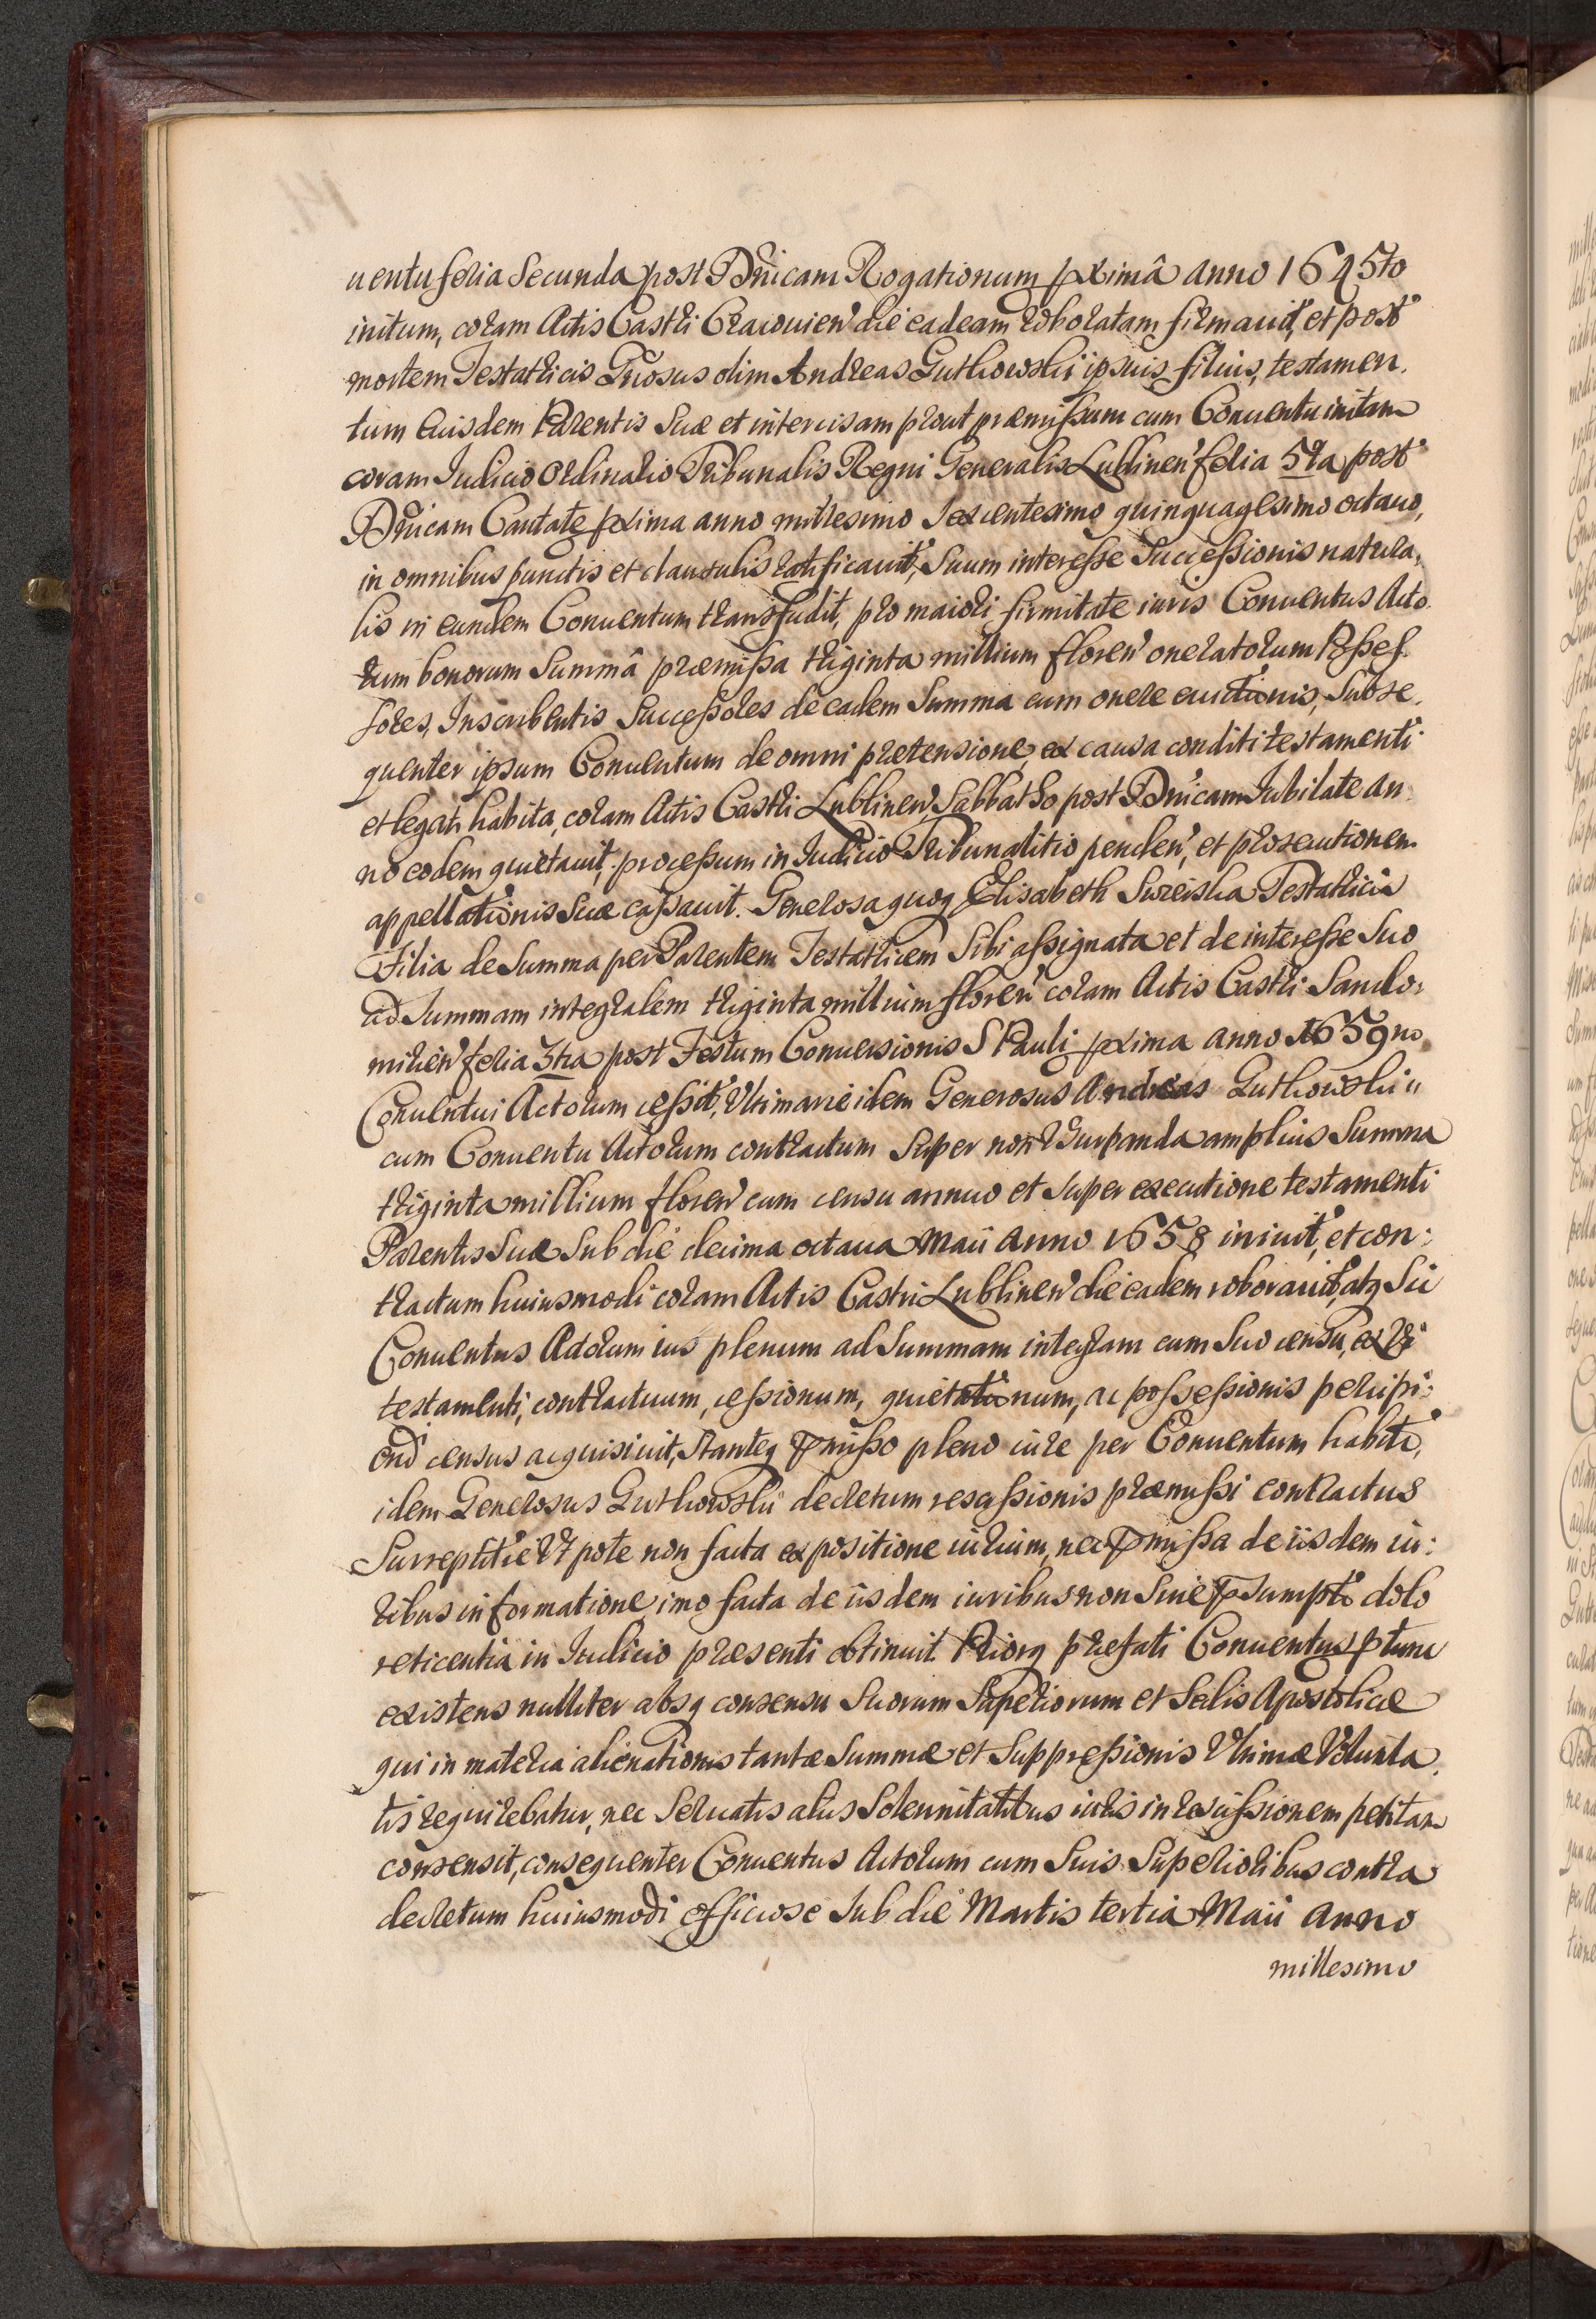 uentu feria Secunda post Dnicam Rogationum pximâ anno 1645to
initum, coram Actis Castri Cracouien die eadem roboratam firmauit, et post
mortem Testatricis Gnosus olim Andreas Guthowskii ipsius filius, testamen.
tum Eiusdem Parentis Suæ et intercisam prout præmissum cum Conuentu initam
coram Iudicio Ordinario Tribunalis Regni Generalis Lublinen feria 5ta post
Dnicam Cantate pxima anno millesimo Sexcentesimo quinquagesimo octauo,
in omnibus punctis et clausulis ratificauit, Suum interesse Successionis natura,
lis in eundem Conuentum transfudit, pro maiori firmitate iuris Conuentus Acto.
rum bonorum Summâ præmissa triginta millium floren oneratorum Posses.
sores, Inscribentis Successores de eadem Summa cum onere euictionis, Subse.
quenter ipsum Conuentum de omni prætensione, ex causa conditi testamenti
et legati habita, coram Actis Castri Lublinen Sabbatho post Dnicam Iubilate an:
no eodem quietauit, processum in Iudicio Tribunalitio penden, et prosecutionem
appellationis Suæ cassauit. Generosa quoq Elisabeth Testatricis
Filia de Summa per Parentem Testatricem Sibi assignata et de interesse Suo
ad Summam integralem triginta millium floren coram Actis Castri Sando:
mirien feria 3tia post Festum Conuersionis S Pauli pxima anno 1659no
Conuentui Actorum cessit, Ultimarie idem Generosus Andreas Guthowskii
cum Conuentu Actorum contractum Super non Usurpanda amplius Summa
triginta millium floren cum censu annuo et Super executione testamenti
Parentis Suæ Sub die decima octaua Maii Anno 1658 iniuit, et con:
tractum huiusmodi coram Actis Castri Lublinen die eadem roborauit, atq Sic
Conuentus Actorum ius plenum ad Summam integram cum Suo censu, ex Vi
testamenti, contractuum, cessionum, quietationum, ac possessionis percipi:
endi census acquisiuit, Stanteq pmisso pleno iure per Conuentum habito,
idem Generosus Guthowskii decretum rescissionis præmissi contractus
Surreptitie Ut pote non facta expositione iurium, nec pmissa de iisdem iu:
ribus informatione, imo facta de iisdem iuribus non Sine psumpto dolo
reticentia in Iudicio præsenti obtinuit Priorq præfati Conuentus ptunc
existens nulliter absq consensu Suorum Superiorum et Sedis Apostolicæ
qui in materia alienationis tantæ Summæ et Suppressionis Ultimæ Volunta.
tis requirebatur, nec Seruatis aliis Solennitatibus iuris in rescissionem petitam
consensit, consequenter Conuentus Actorum cum Suis Superioribus contra
decretum huiusmodi officiose Sub die Martis tertia Maii Anno
millesimo